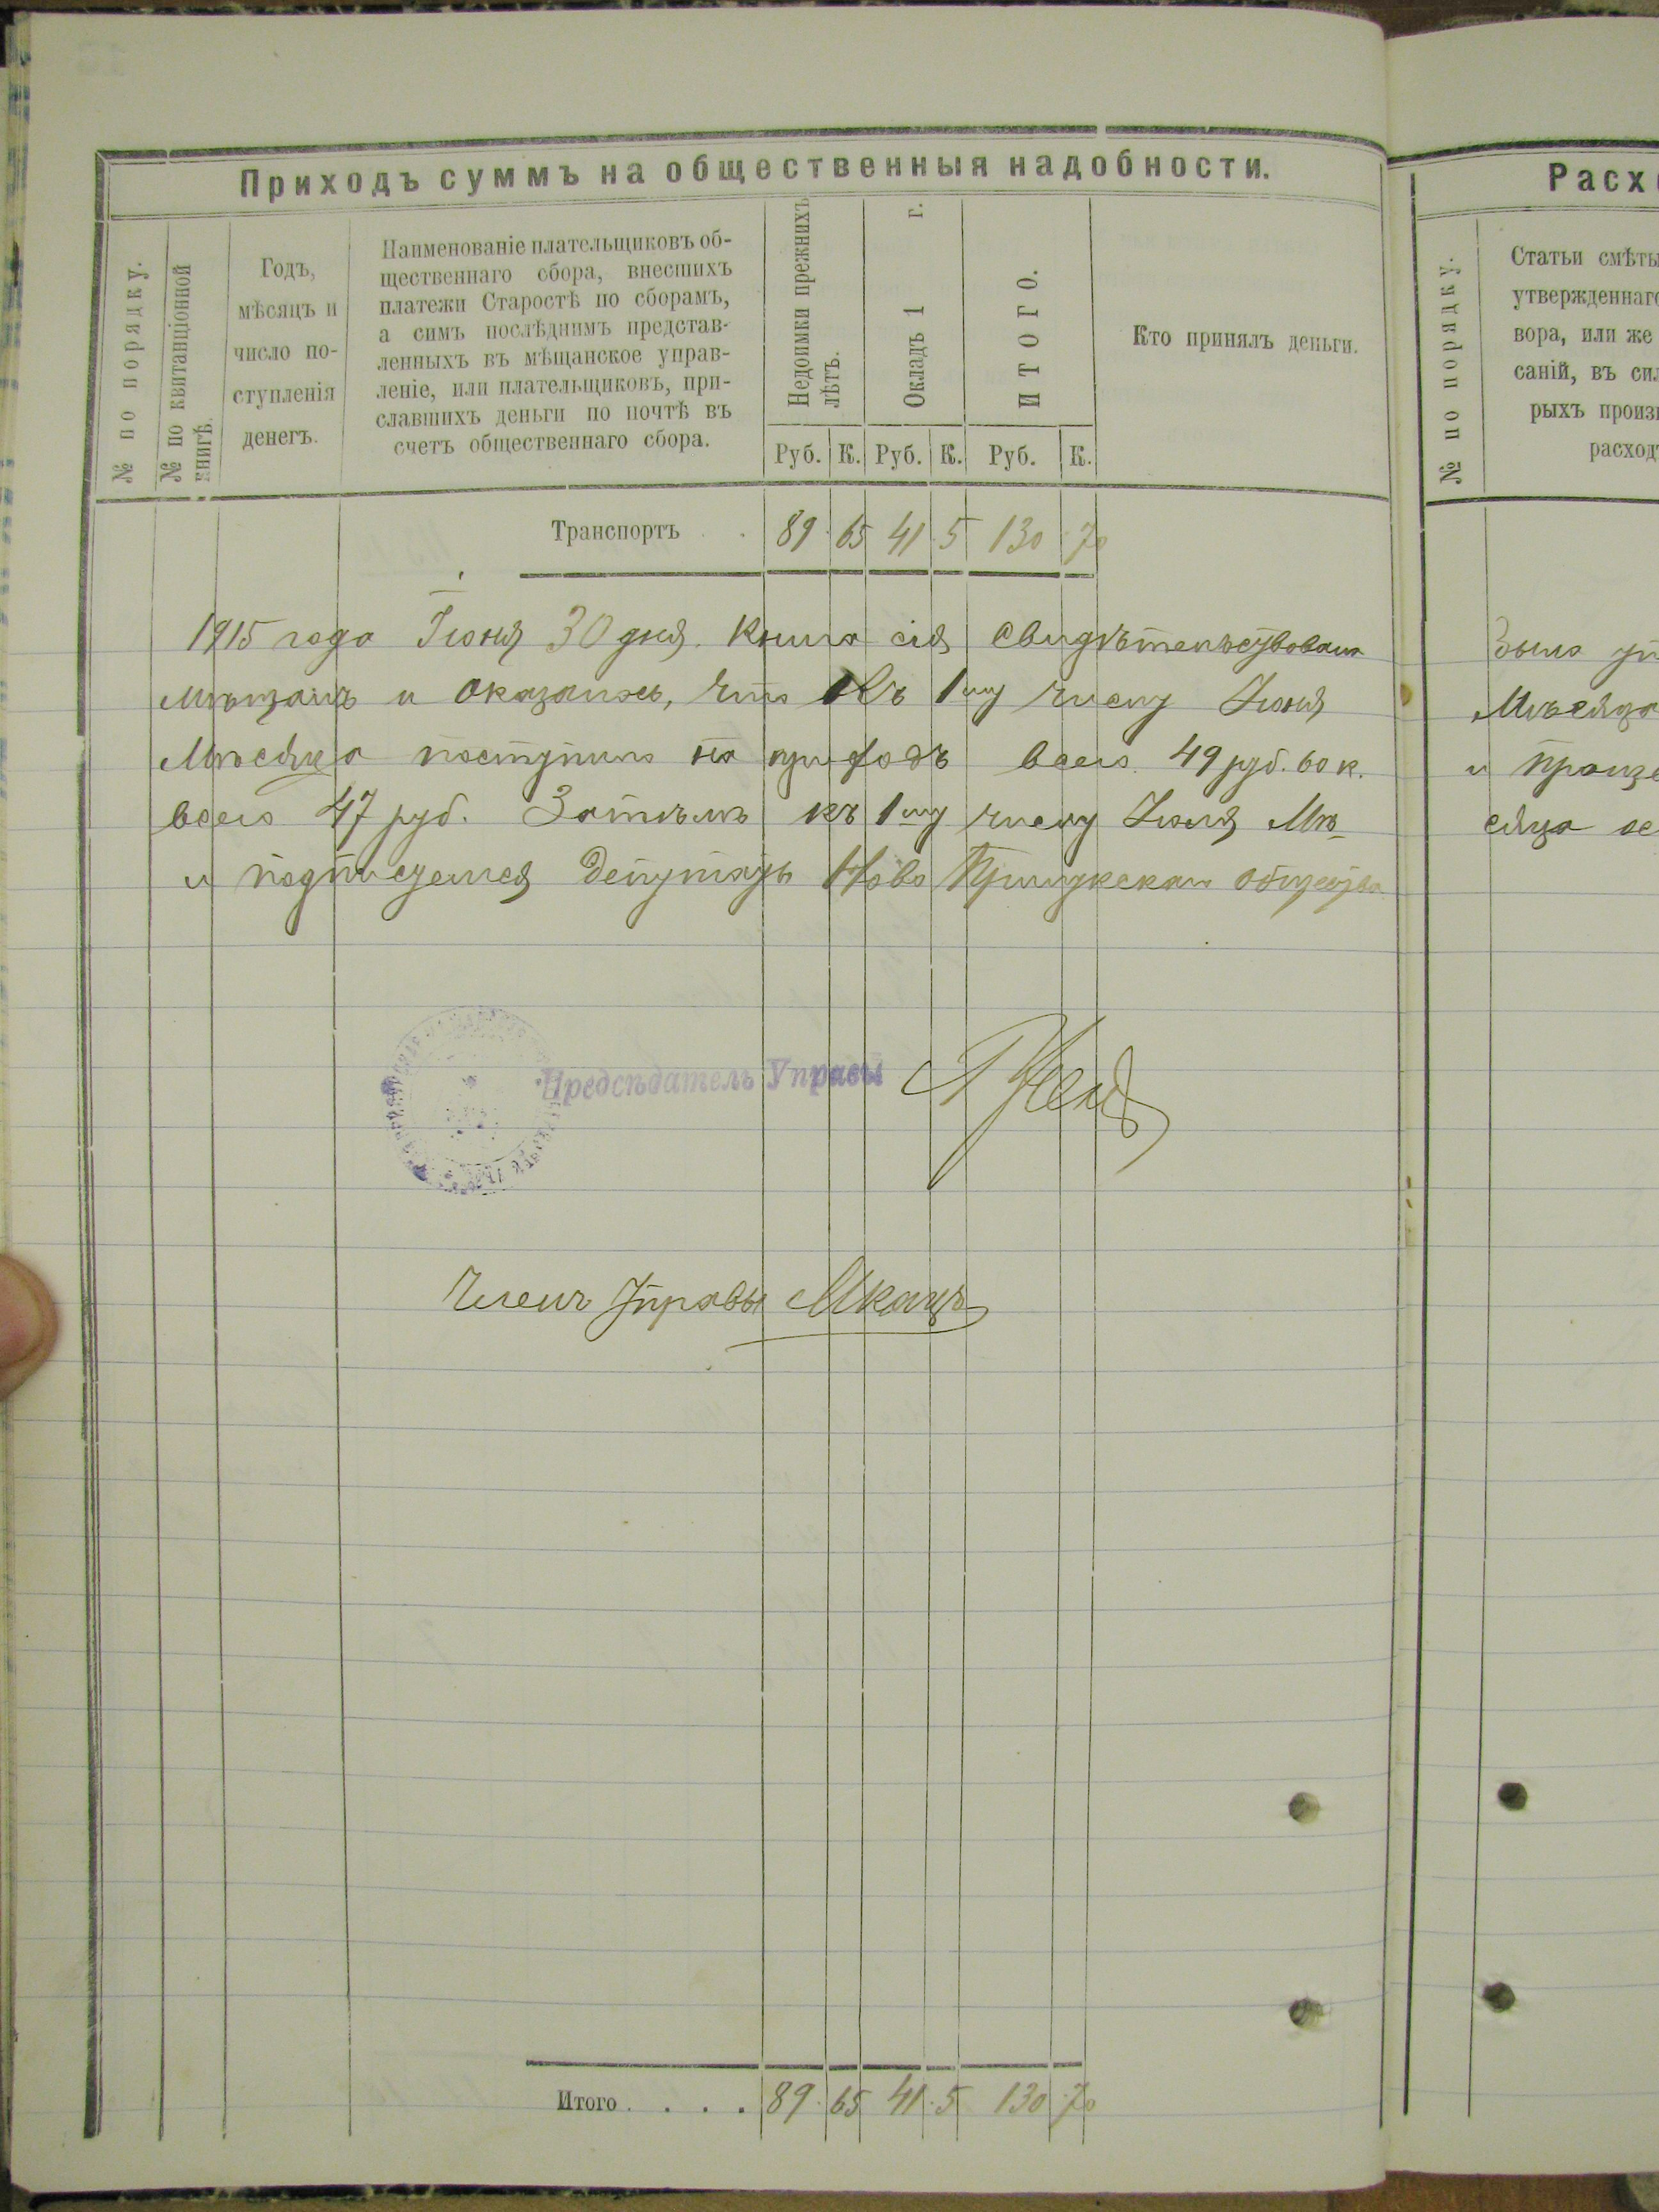 Приходъ суммъ на общественныя надобности.
№ по порядку.
№ по квитанціонной
книгѣ.
Годъ,
мѣсяцъ и
число по-
ступленія
денегъ.
Наименованіе плательщиковъ об-
щественнаго сбора, внесшихъ
платежи Старостѣ по сборамъ,
а симъ послѣднимъ представ-
ленныхъ въ мѣщанское управ-
леніе, или плательщиковъ, при-
славшихъ деньги по почтѣ въ
счетъ общественнаго сбора.
Недоимки прежнихъ
лѣтъ.
Окладъ 1 г.
ИТОГО.
Кто принялъ деньги.
Руб. К. Руб. К. Руб. К.
Транспортъ . . 89 65 41 5 130 70
1915 года Іюня 30 дня. Книга сія свидѣтельствована
и оказалось, что къ 1му числу Іюня
Мѣсяца поступило на приходъ всего 49 руб. 60 к.
всего 47 руб. Затѣмъ къ 1му числу Іюля Мѣ-
и Депутатъ Ново общества
Предсѣдатель Управы
Членъ Управы МКацъ
Итого . . . . 89 65 41 5 130 70
Расх
№ по порядку.
Статьи смѣты
утвержденнаго
вора, или же
саній, въ сил
рыхъ произ
расход
Мѣсяца
и произв
сяца ос